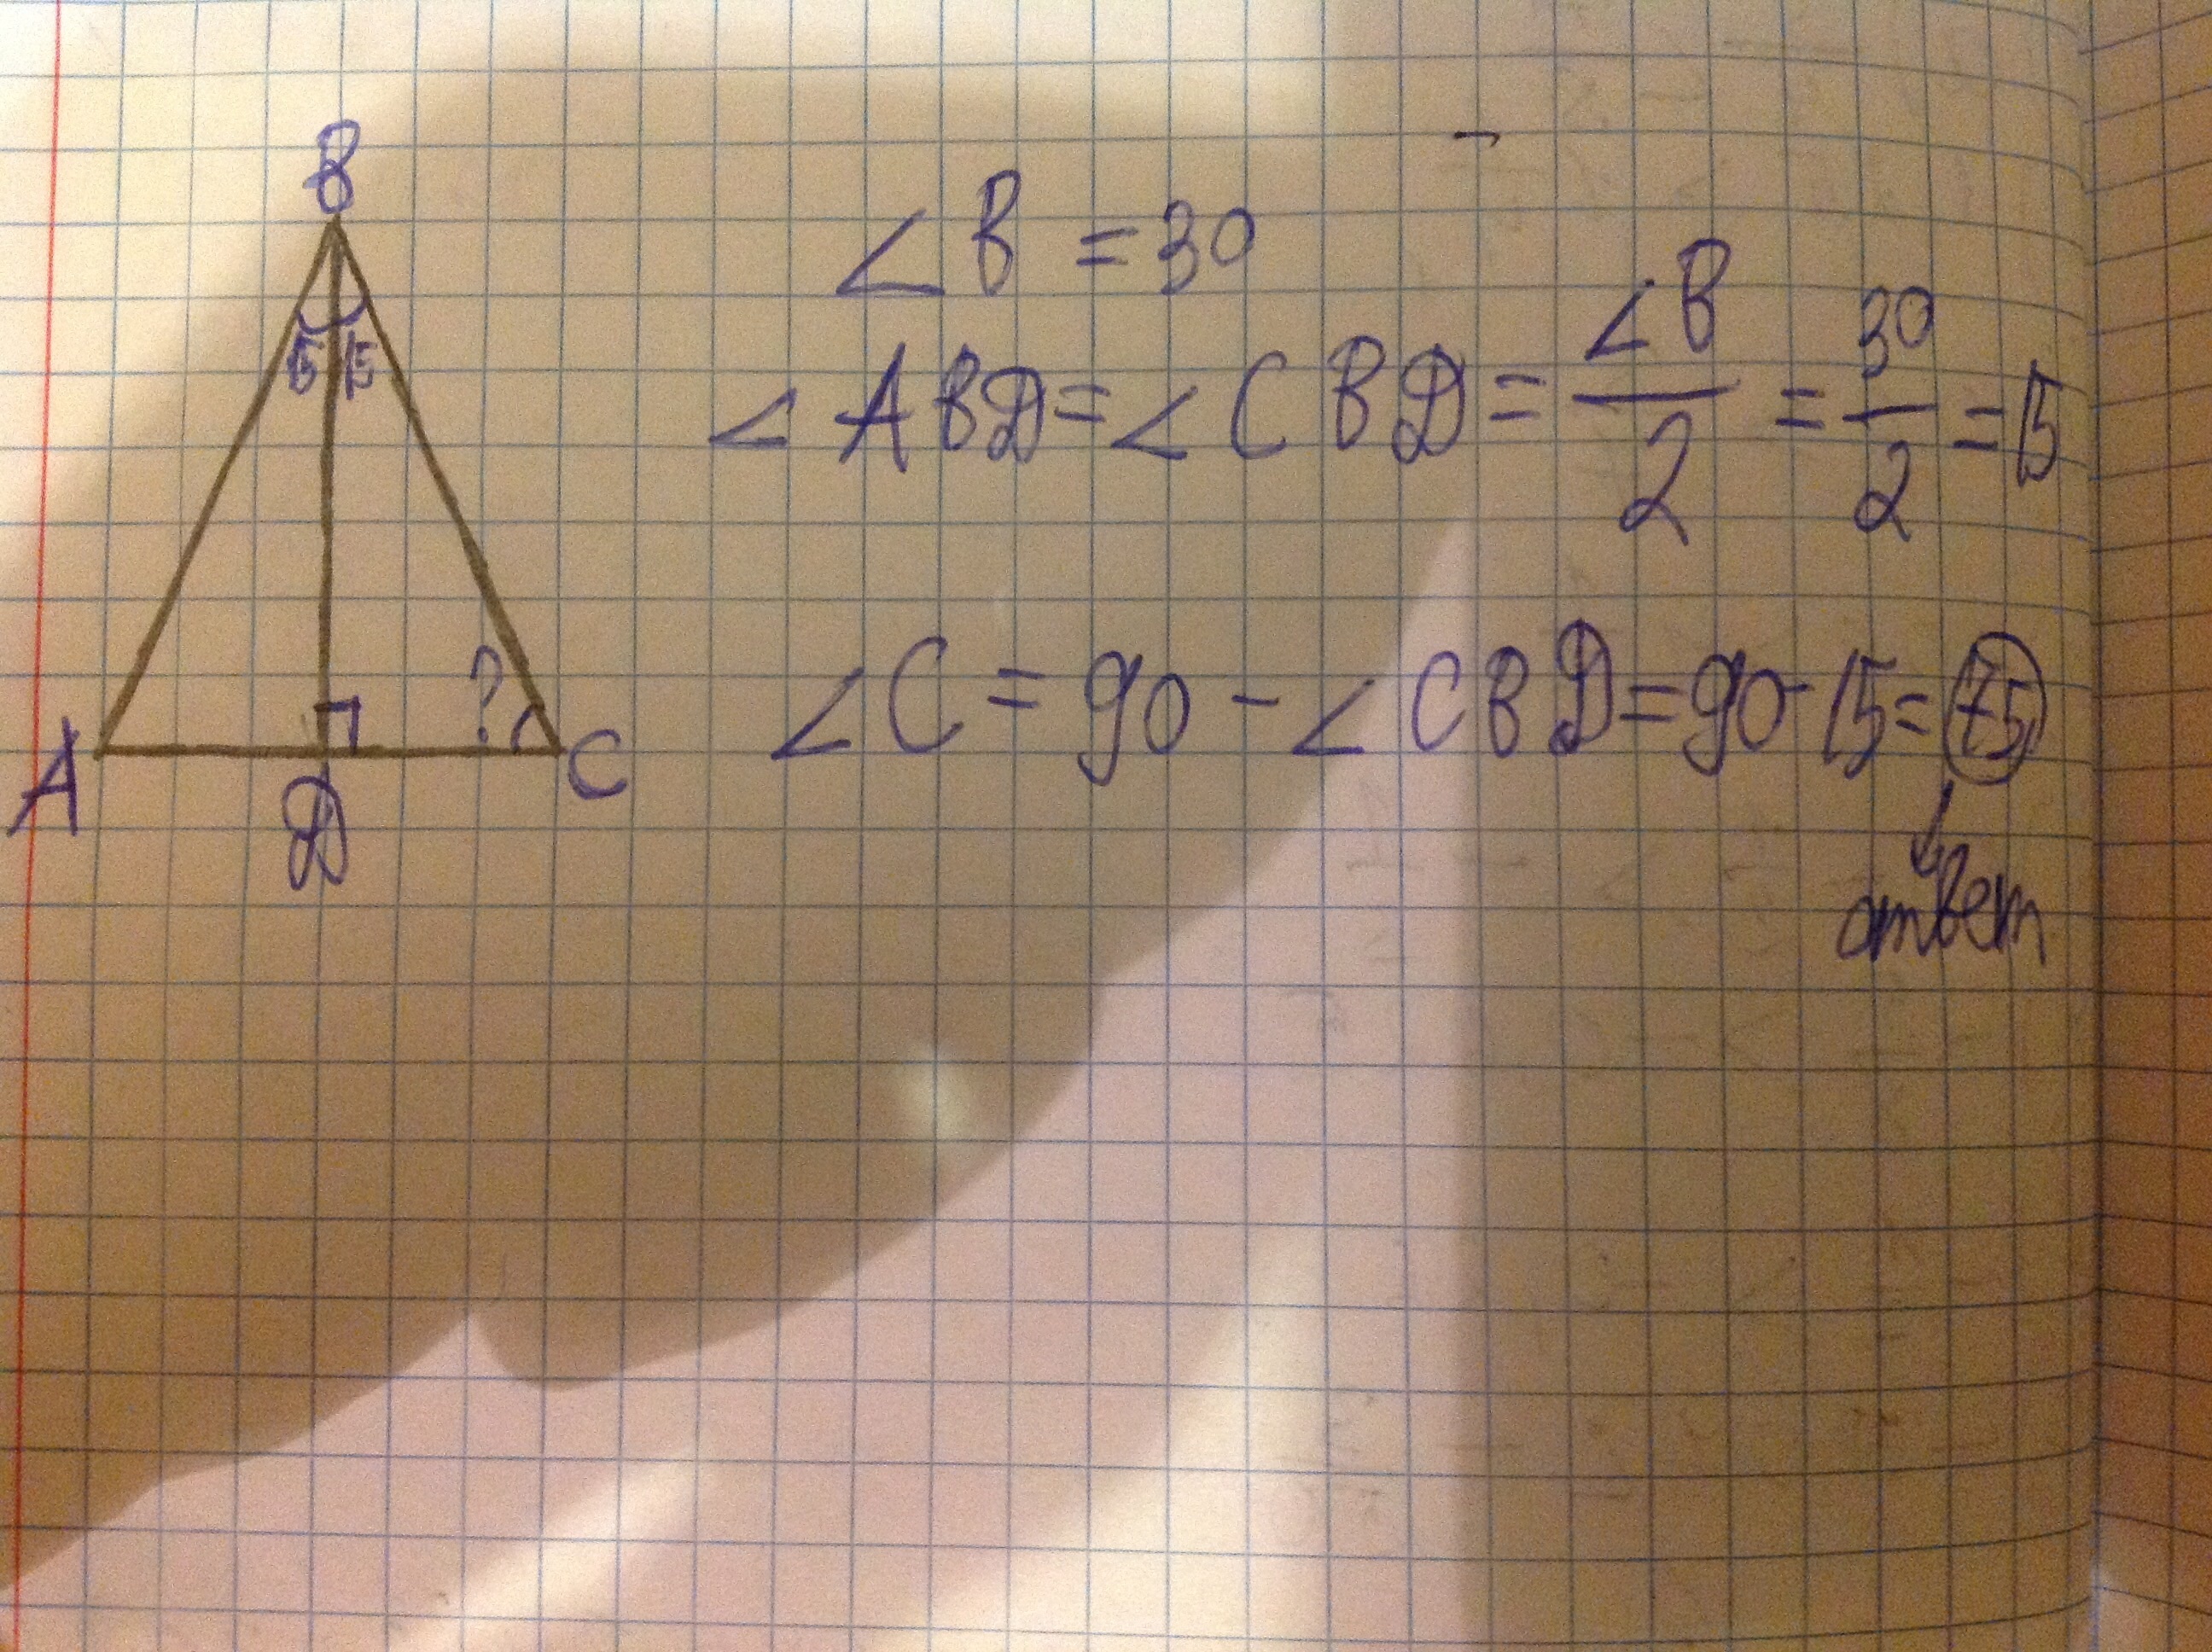 B
15 15
A
D
? C
∠B = 30
∠ABD = ∠CBD = ∠B/2 = 30/2 = 15
∠C = 90 - ∠CBD = 90 - 15 = 75
ответ